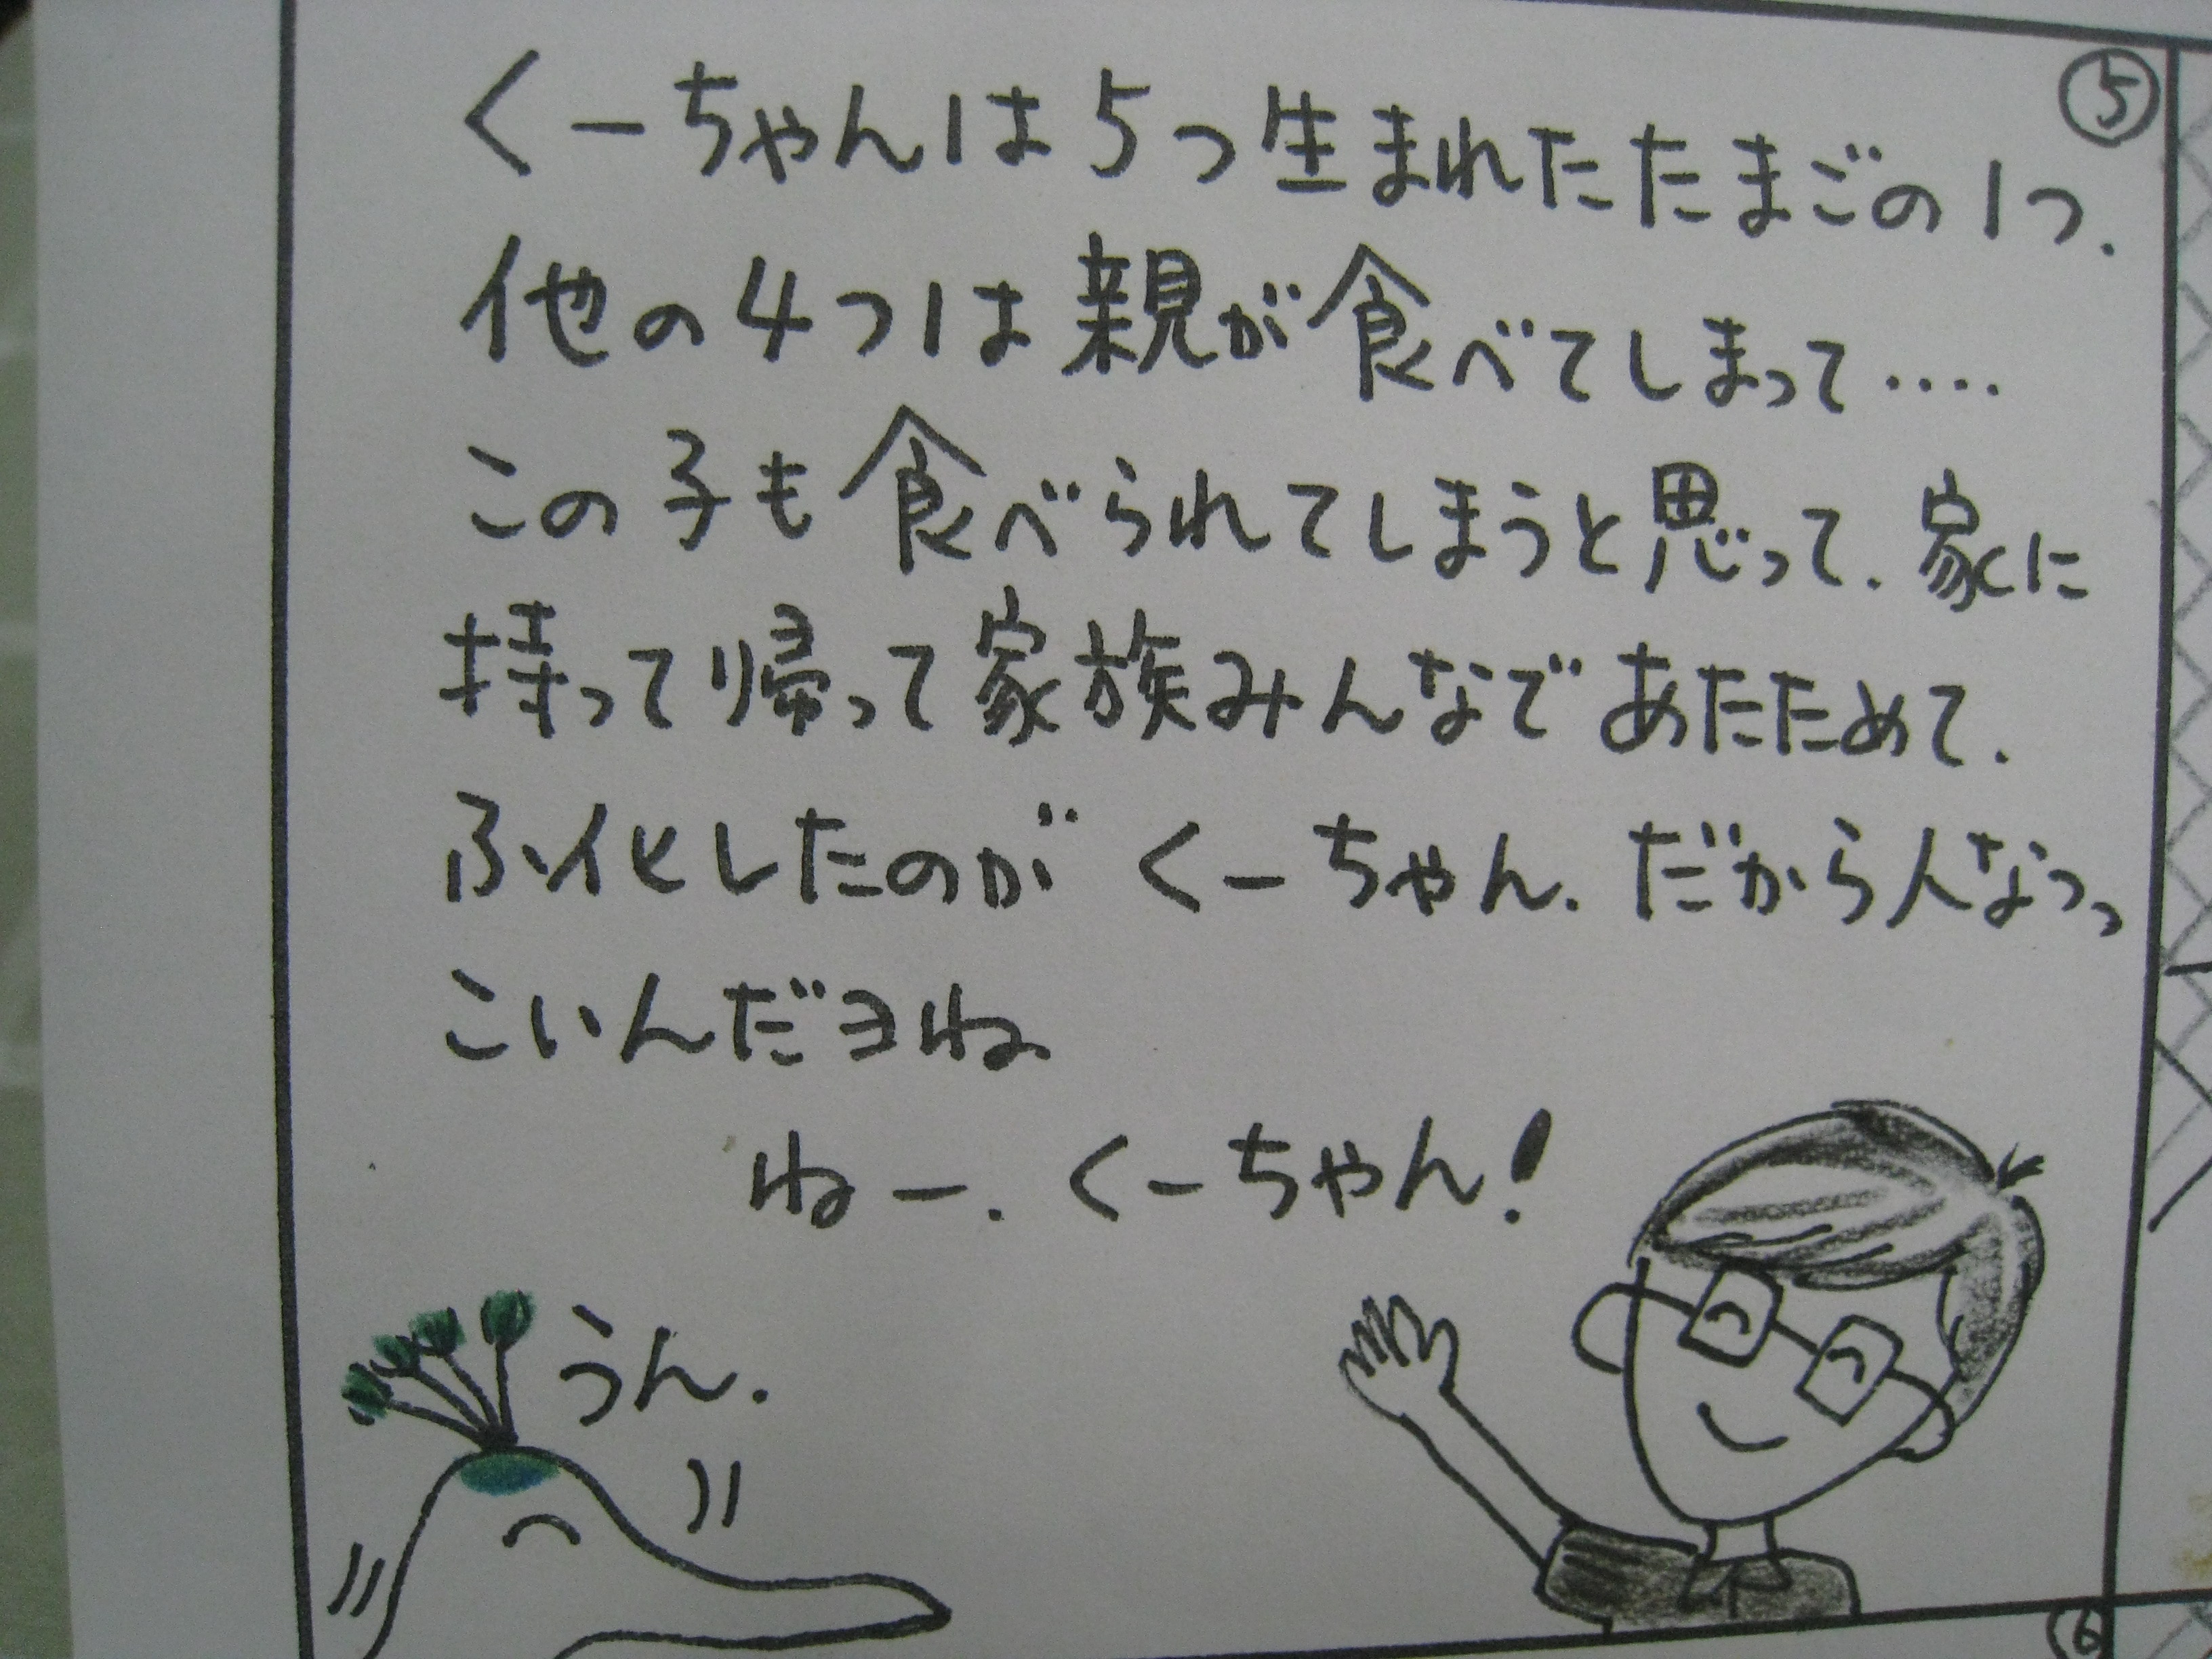 ⑤
くーちゃんは5つ生まれたたまごの1つ.
他の4つは親が食べてしまって‥‥
この子も食べられてしまうと思って.家に
持って帰って家族みんなであたためて.
ふ化したのが くーちゃん.だから人なつっ
こいんだヨね
ねー.くーちゃん!
うん.
⑥